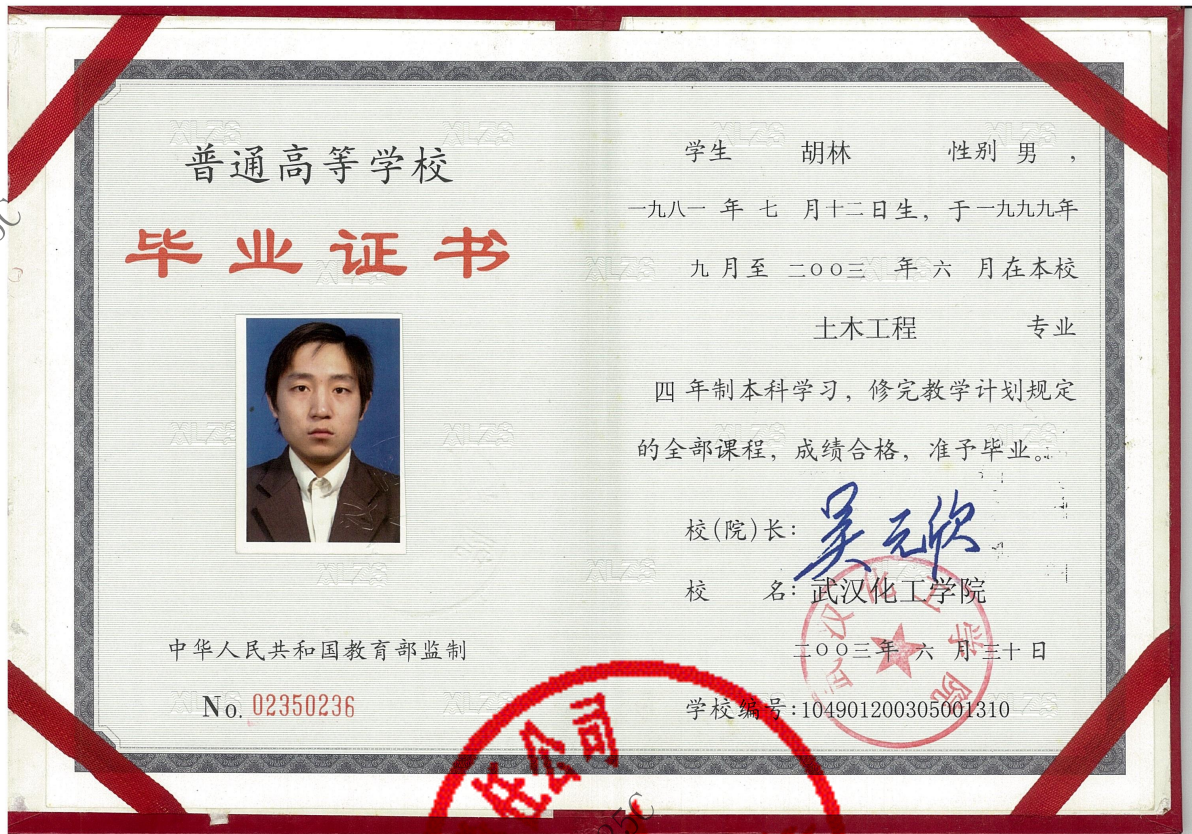 普通高等学校
毕业证书
中华人民共和国教育部监制
No. 02350236
学生 胡林 性别 男，
一九八一 年 七 月十二日生，于一九九九年
九 月至 二〇〇三 年 六 月在本校
土木工程 专业
四 年制本科学习，修完教学计划规定
的全部课程，成绩合格，准予毕业。
校(院)长：吴元欣
校 名：武汉化工学院
二〇〇三年 六 月三十日
学校编号：104901200305001310
武汉化工学院
公司
XLZS